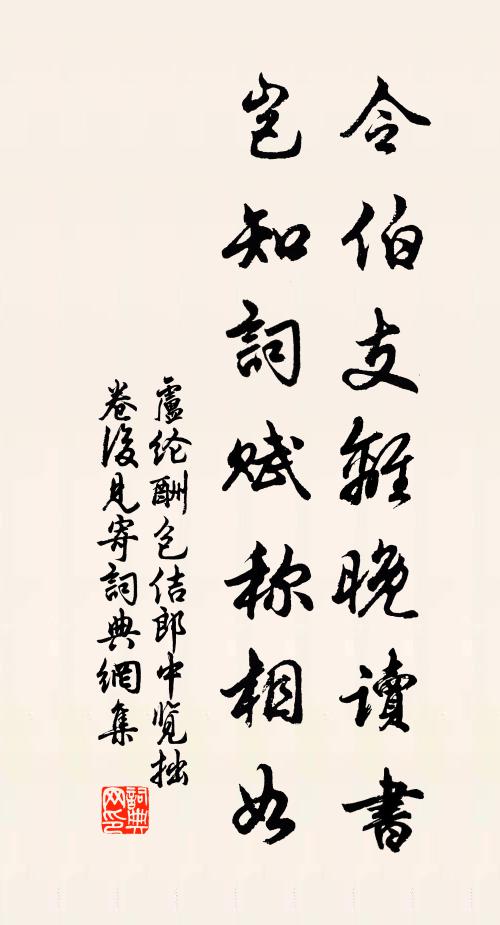 令伯支離晚讀書
豈知詞賦称相如
盧纶酬包佶郎中覽拙
卷後見寄詞典網集
詞典
网印